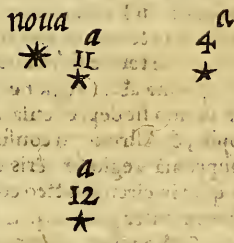 noua
a
11
a
4
a
12